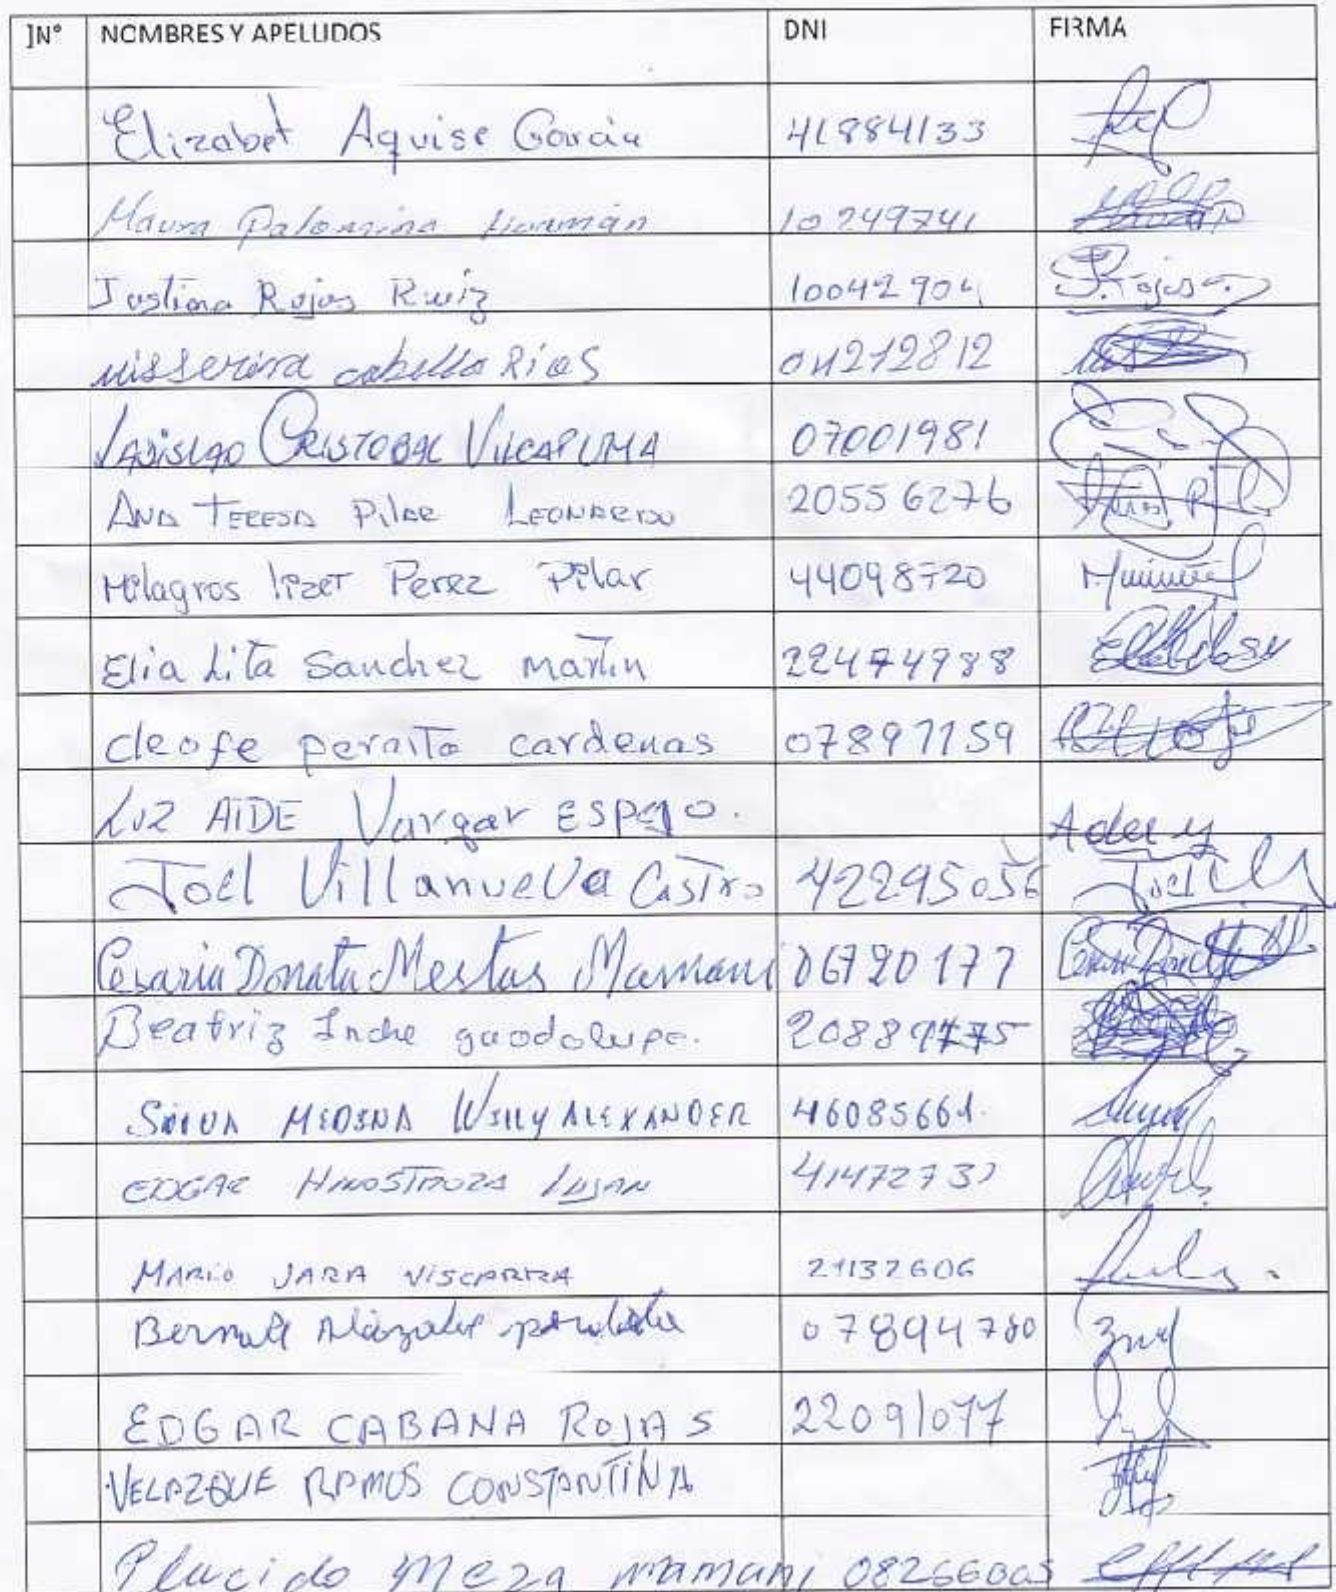 ]N° NOMBRES Y APELLIDOS DNI FIRMA
Elizabet Aquise García 41884133
Maura Palomino Huamán 10249741
Justina Rojas Ruiz 10042904
cabello Rios 04212812
Ladislao Cristobal Vilcapuma 07001981
Ana Teresa Pilar Leonardo 20556276
Milagros lizet Perez Pilar 44098720
Elia Lita Sanchez martin 22474988
cleofe peralta cardenas 07897159
Luz AIDE Vargar ESPEJO.
Joel Villanueva Castro 42295056 Joel
Cesaria Donata Mestas Mamani 06720177
Beatriz Inche guadalupe.
SILVA MEDINA WILLY ALEXANDER 46085661.
EDGAR HINOSTROZA LUJAN
MARIO JARA VISCARRA 21132606
07894780
EDGAR CABANA ROJAS 22091077
VELAZQUE RAMOS CONSTANTINA
Placido Meza mamani 08266005